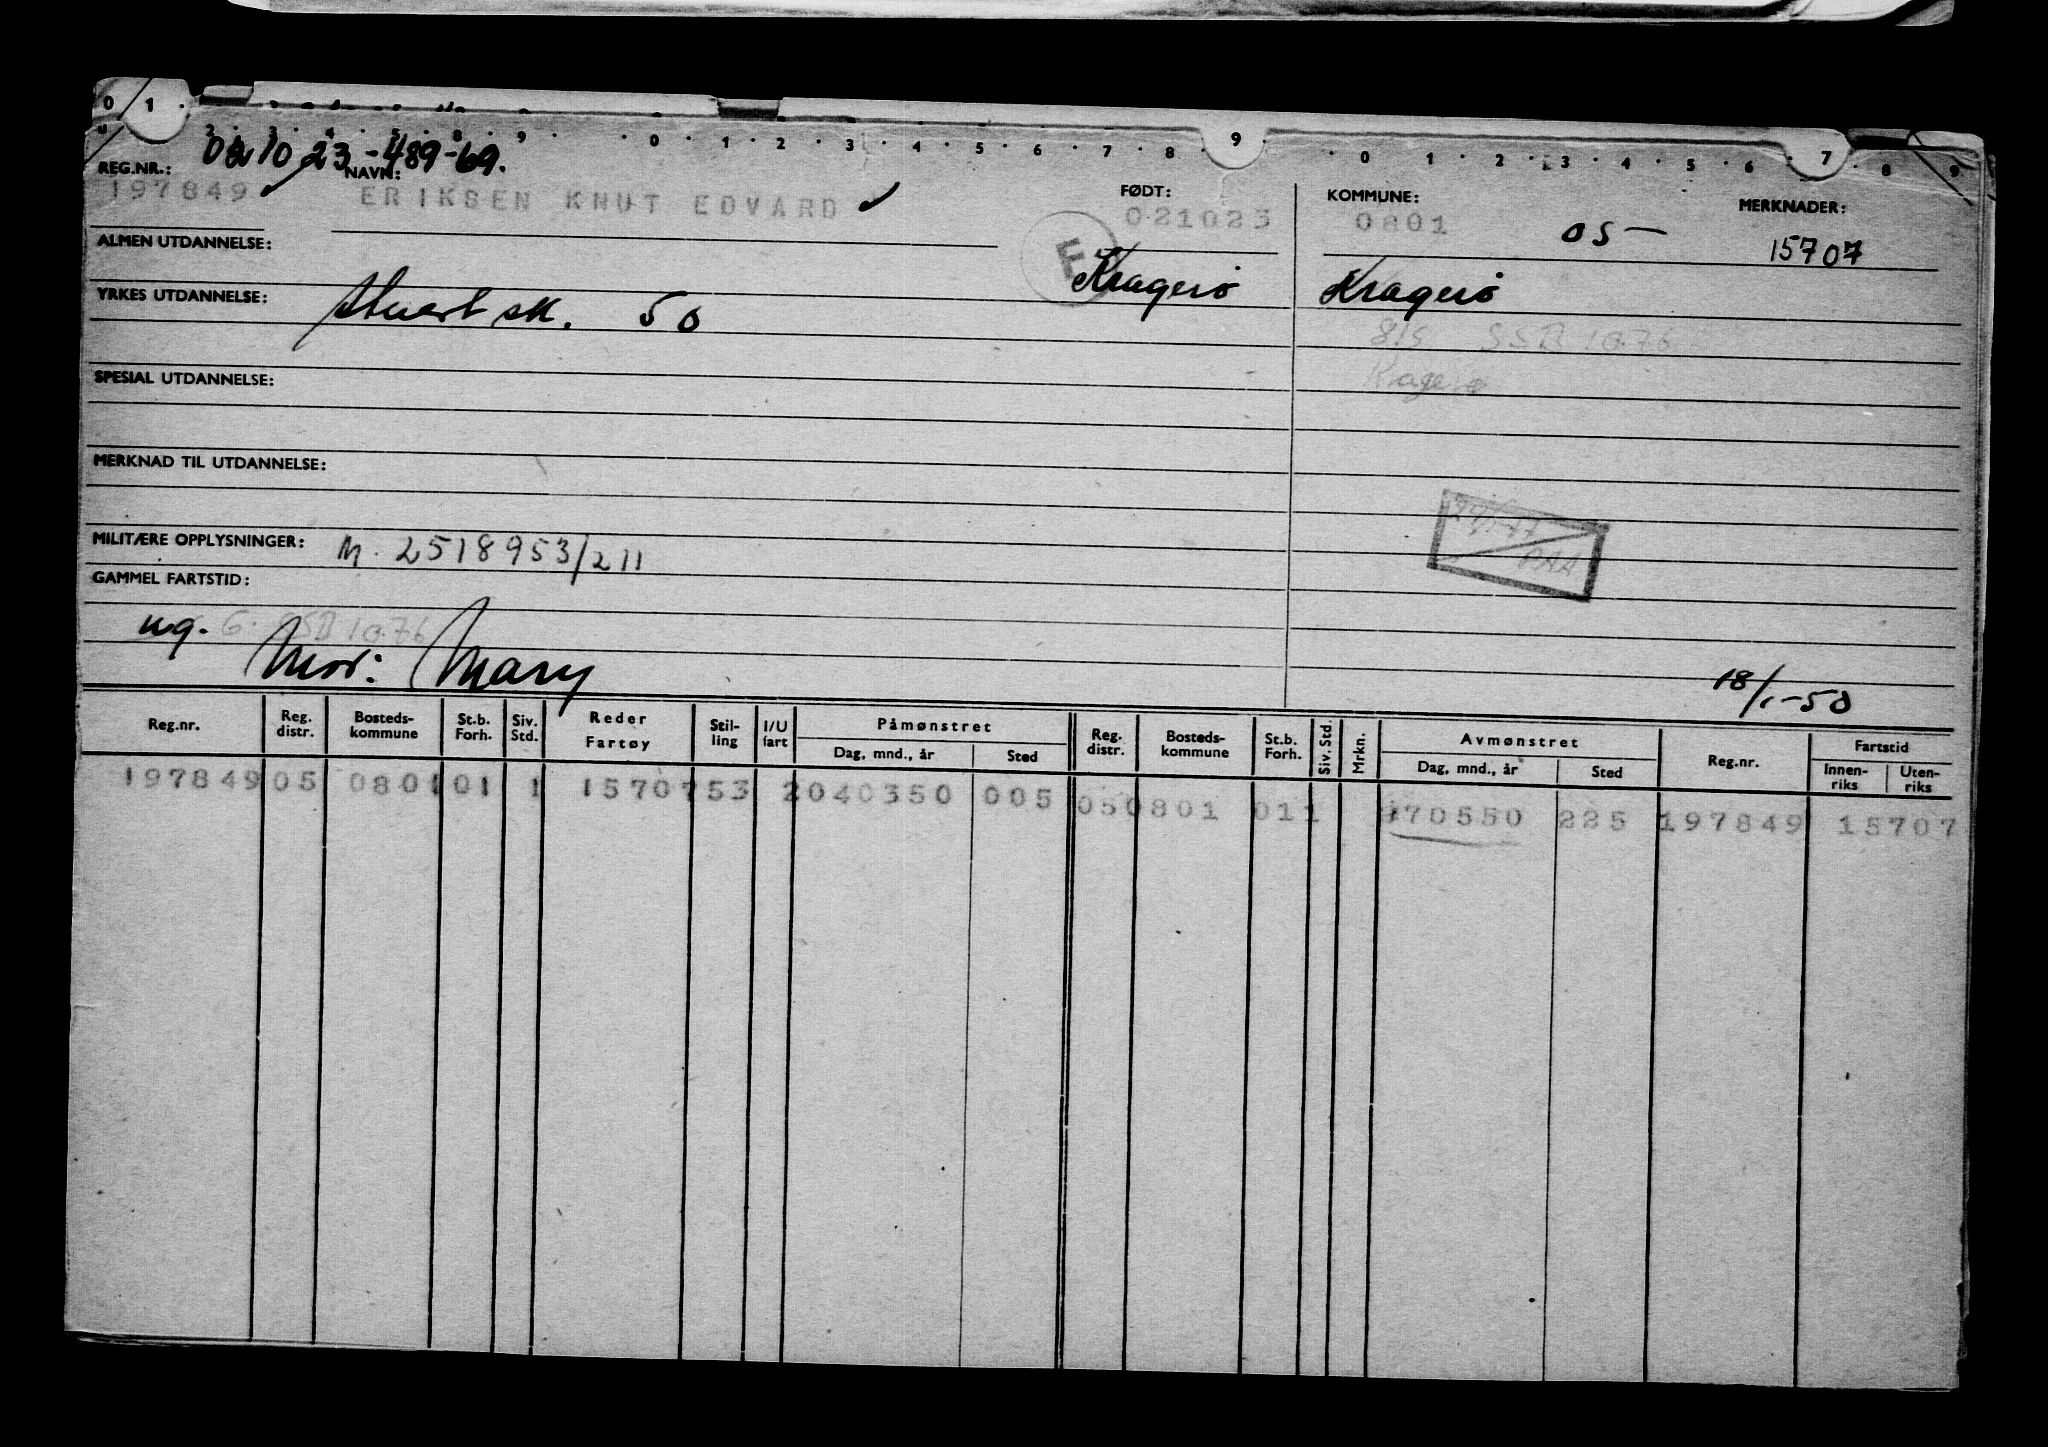 0 1 2 3 4 5 8 9 0 1 2 3 4 5 6 7 8 9 0 1 2 3 4 5 6 7 8 9
021023-489-69.
REG.NR.: NAVN: FØDT: KOMMUNE: MERKNADER:
197849 ERIKSEN KNUT EDVARD 021023 0801 05- 15707
ALMEN UTDANNELSE: F Kragerø Kragerø
YRKES UTDANNELSE: Stuert sk. 50
SSB 10.76
Kragerø
SPESIAL UTDANNELSE:
MERKNAD TIL UTDANNELSE:
MILITÆRE OPPLYSNINGER: M. 2518953/211
GAMMEL FARTSTID:
ug. G. SSB 10.76
Mor: Mary
18/1-50
Reg.nr. Reg. distr. Bosteds-kommune St.b. Forh. Siv. Std. Reder Fartøy Stil-ling I/U fart Påmønstret Dag, mnd., år Sted Reg. distr. Bosteds-kommune St.b. Forh. Siv. Std. Mrkn. Avmønstret Dag, mnd., år Sted Reg.nr. Fartstid Innen-riks Uten-riks
197849 05 0801 01 1 15707 53 2 040350 005 05 0801 01 1 270550 225 197849 15707